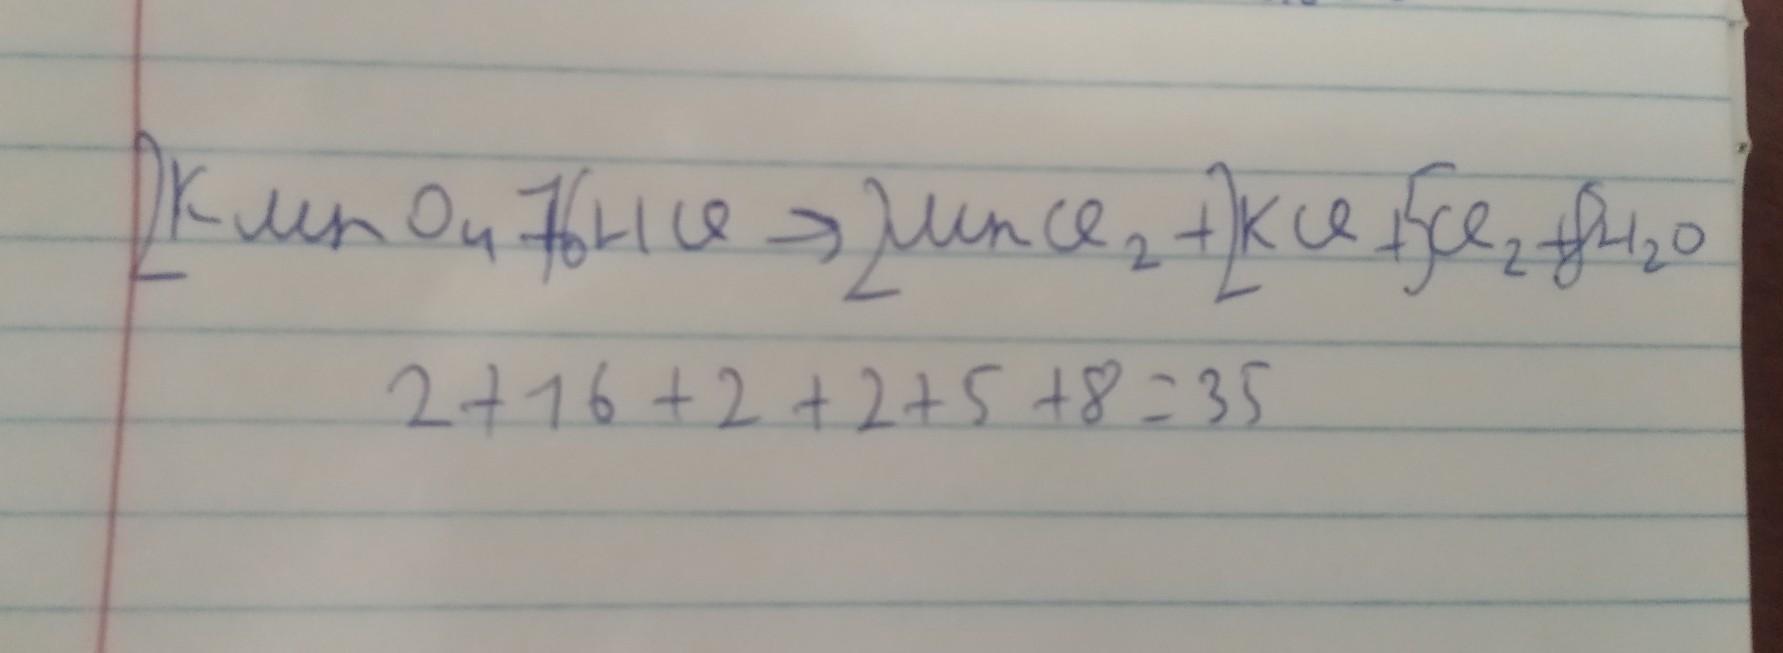 2KMnO₄+16HCl→2MnCl₂+2KCl+5Cl₂+8H₂O
2+16+2+2+5+8=35